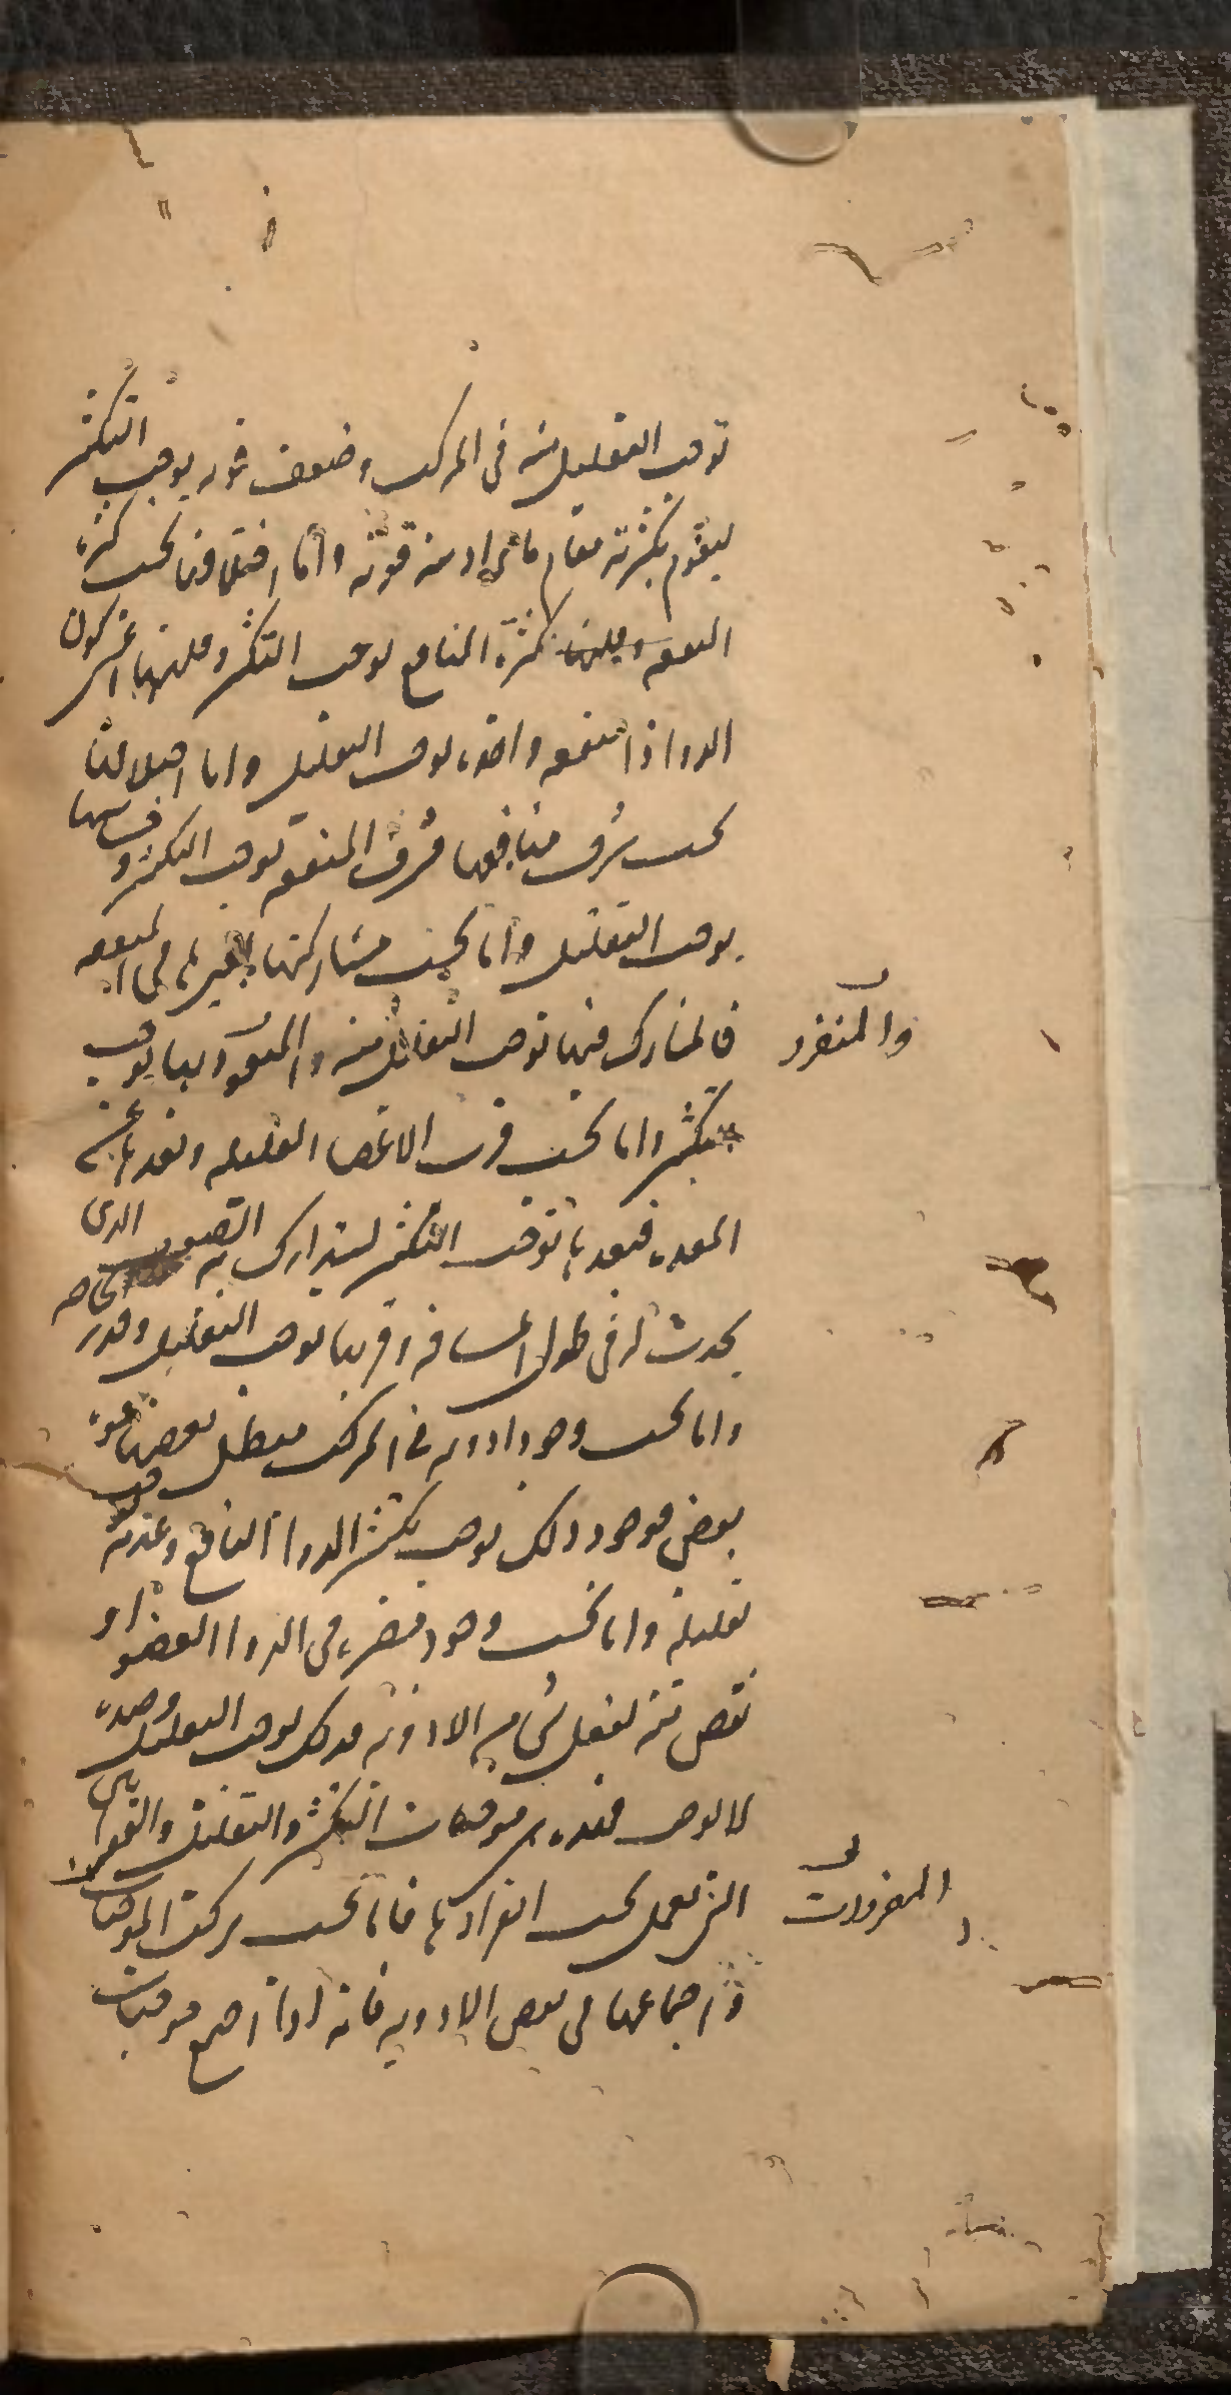 توجب التقليل منه في المركب وضعف قوته يوجب التكثير
ليقوم بكثرته مقام ما يراد من قوته واما اختلافها بحسب كثرة
المنفعة وقلتها فكثرة المنافع توجب التكثير وقلتها اعني كون
الدوا ذا منفعه واحده يوجب التقليل واما اختلافها
بحسب شرف منافعها فشرف المنفعه توجب التكثير وخساستها
يوجب التقليل واما بحسب مشاركتها لغيرها في المنفعه
فالمشارك فيها توجب التقليل منه والمنفرد بها يوجب
والمنفرد
التكثير واما بحسب قرب الاعضا العليله وبعدها عن
المعده فبعدها توجب التكثير ليتدارك به القصور الذي
يحدث له في طول المسافه وقربها توجب التقليل وقدر
واما بحسب وجود ادويه في المركب مبطل بعضها قوة
بعض فوجود ذلك يوجب تكثير الدوا النافع وعدمه
تقليله واما بحسب وجود مضره في الدوا للعضو او
نقص منه لفعل شي من الادويه فذلك يوجب التقليل وضده
لا يوجب فهذه موجبات التكثير والتقليل والقوانين
التي تعمل بحسب انفرادها فاما بحسب تركيب الموجبات
المفردات
واجتماعها في بعض الادويه فانه اذا اجتمع موجبات